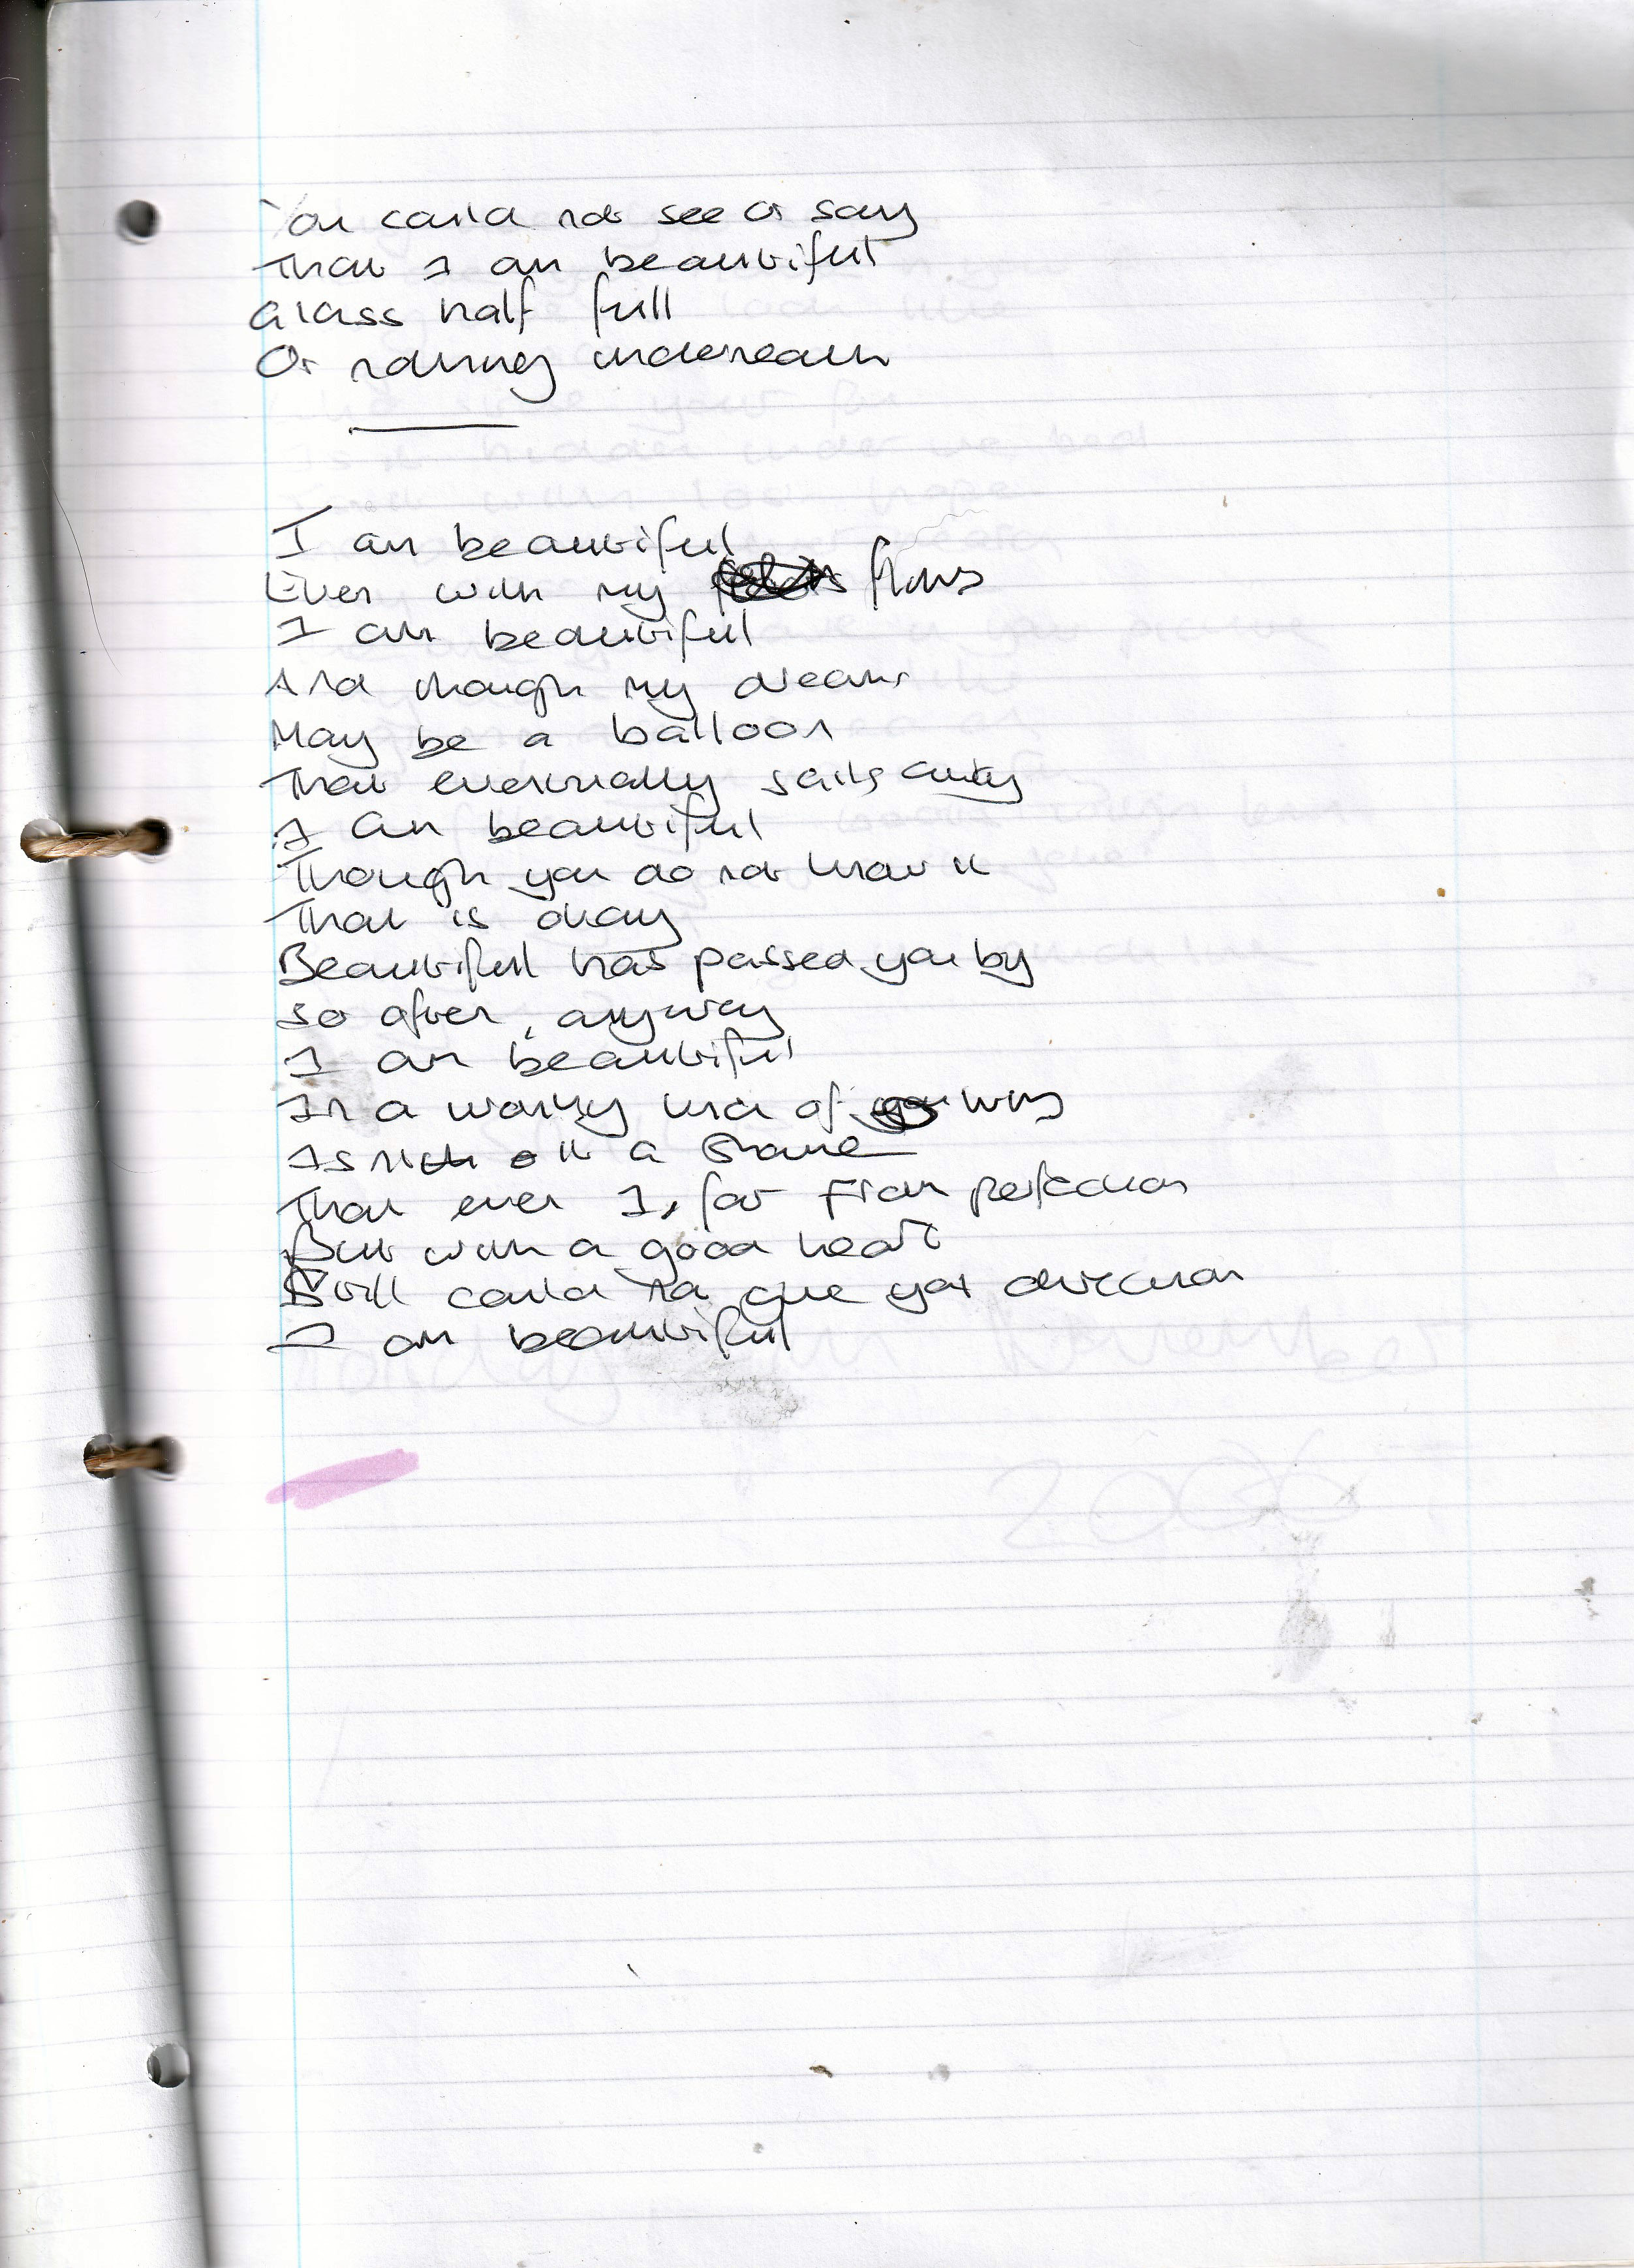 You could not see or say
That I am beautiful
Glass half full
Or nothing underneath
I am beautiful
Even with my flaws
I am beautiful
And though my dreams
May be a balloon
That eventually sails away
I am beautiful
Though you do not know it
That is okay
Beautiful has passed you by
so often, anyway
I am beautiful
In a worthy kind of way
Isn't it a shame
That even I, far from perfection
But with a good heart
Still could not give you direction
I am beautiful